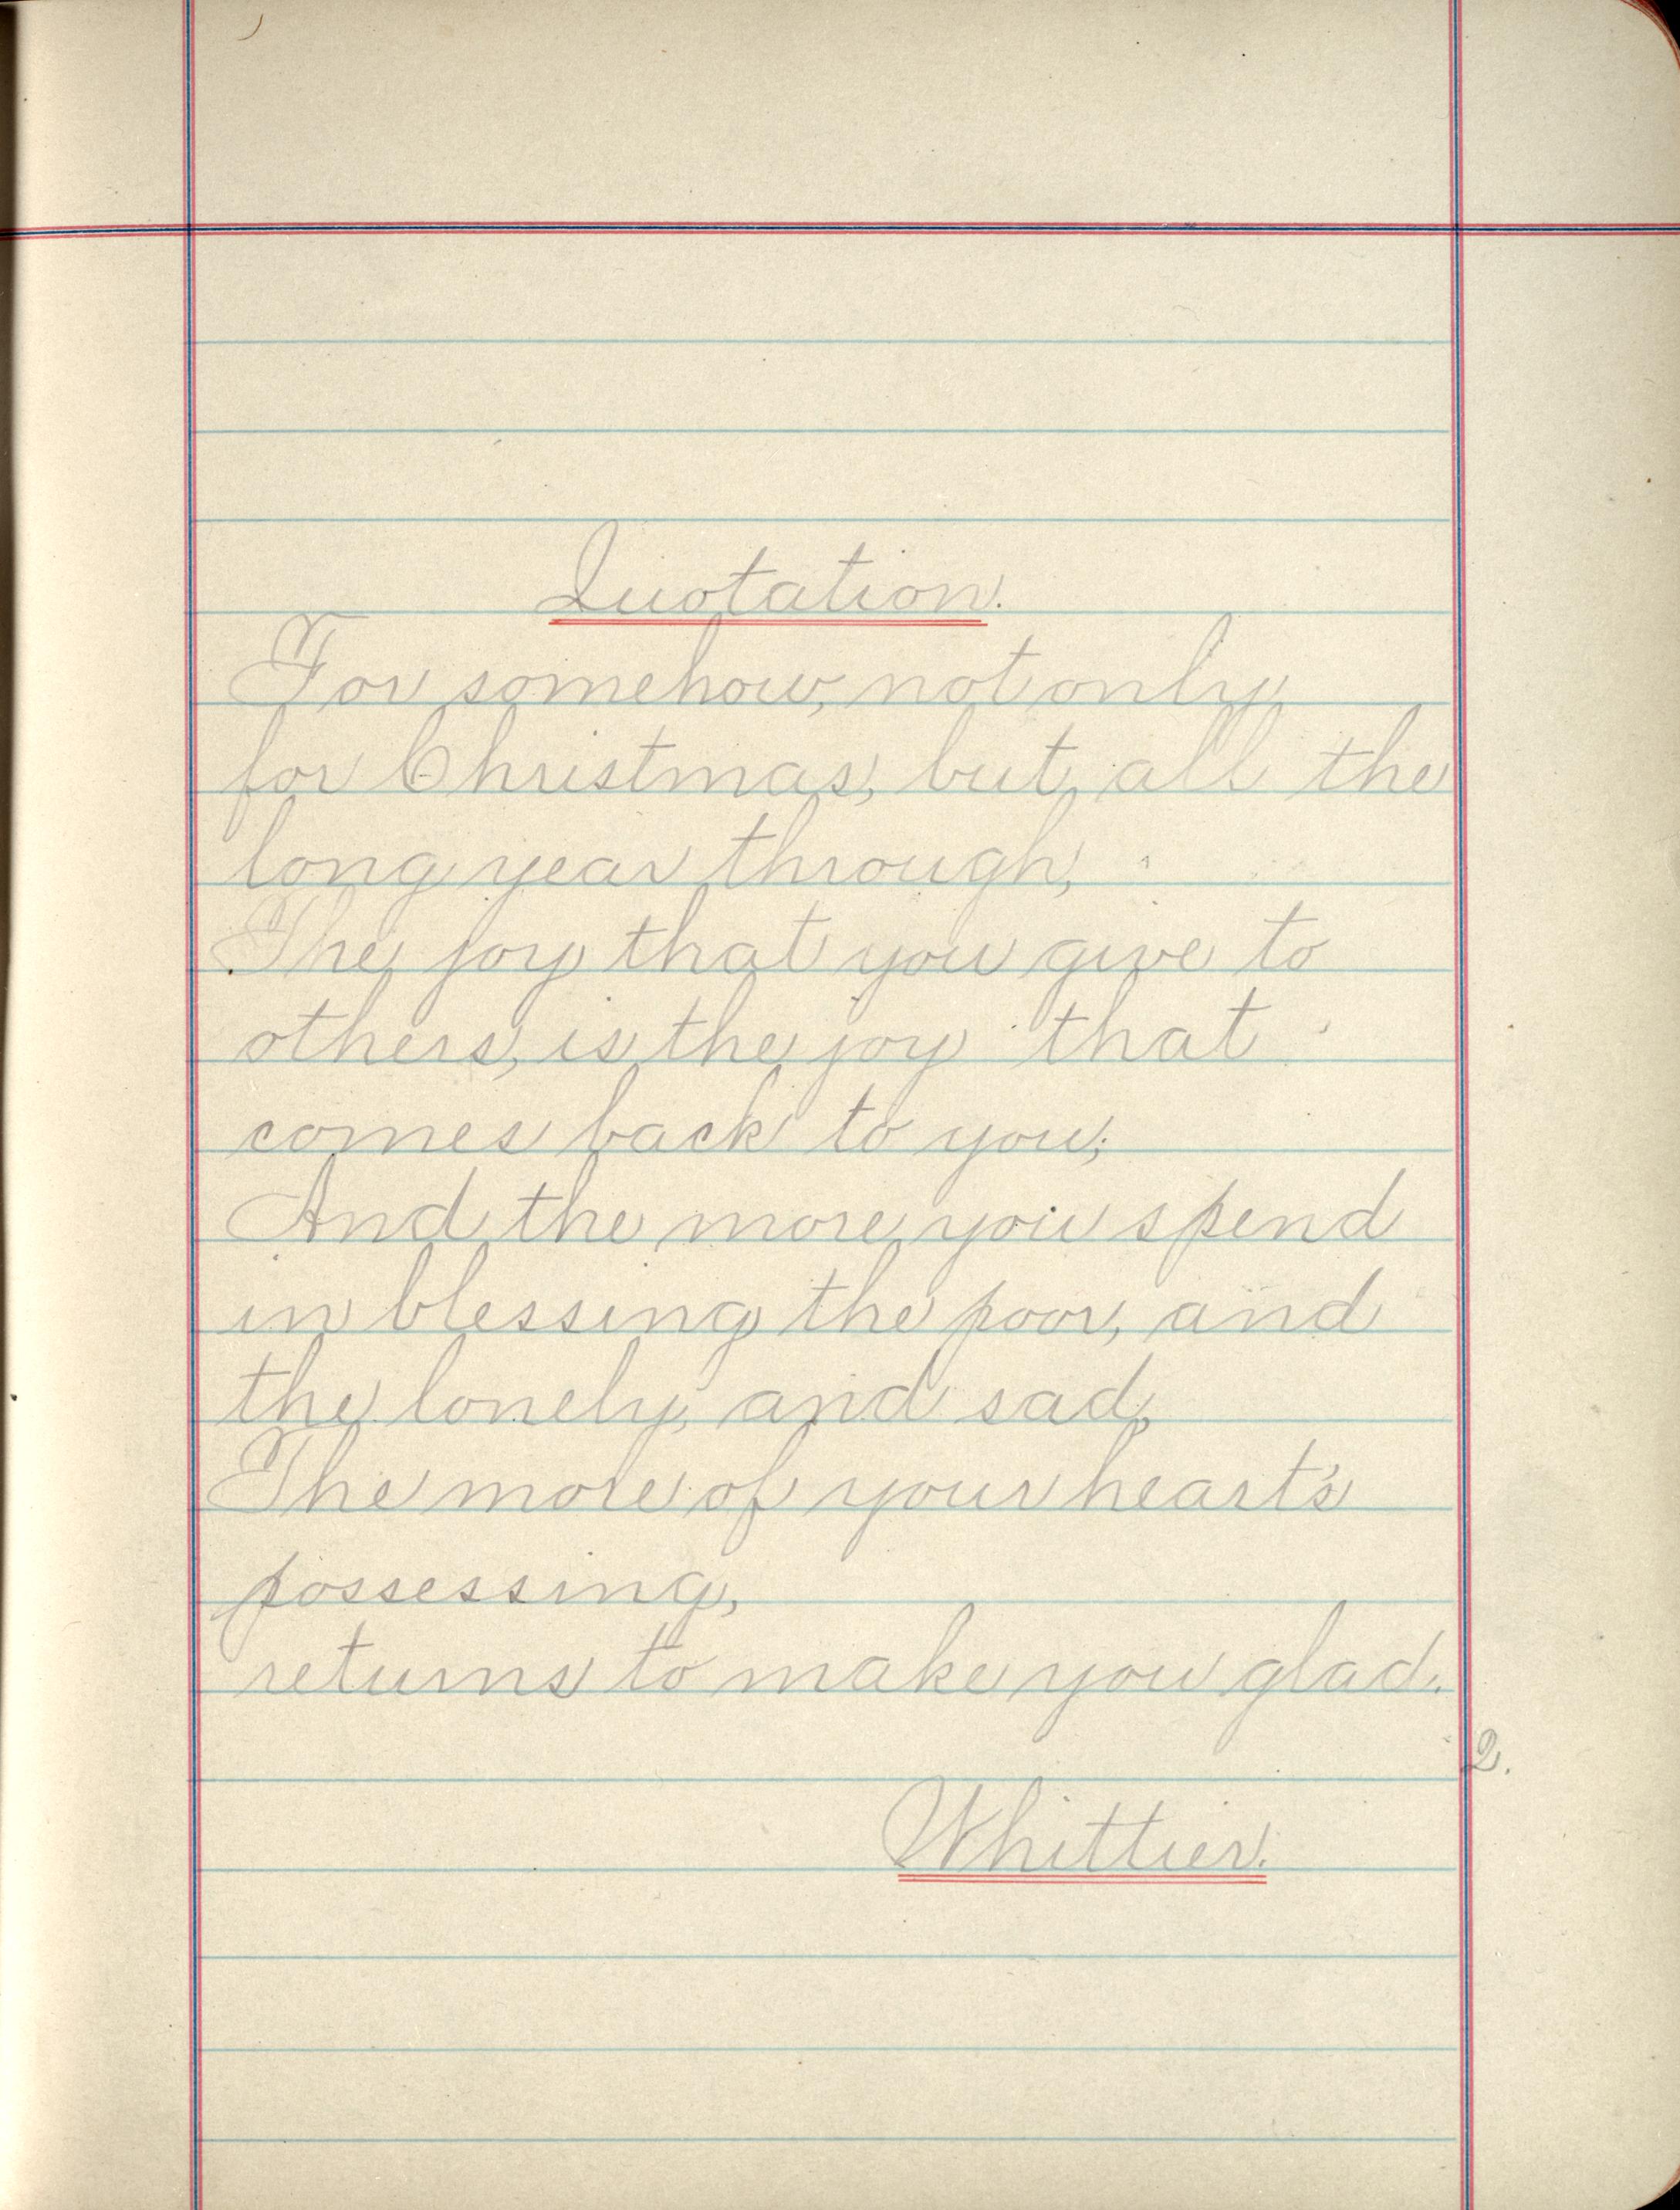 Quotation.
For somehow, not only
for Christmas, but all the
long year through,
The joy that you give to
others, is the joy that
comes back to you;
And the more you spend
in blessing the poor, and
the lonely, and sad,
The more of your heart's
possessing,
returns to make you glad.
2.
Whittier.